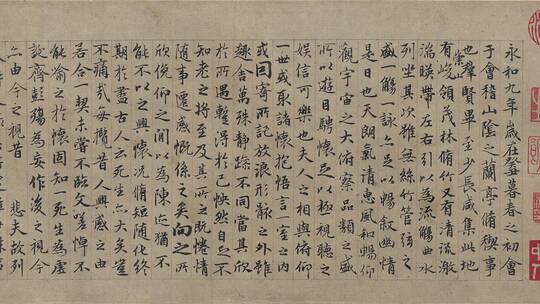 永和九年歲在癸丑暮春之初會
于會稽山陰之蘭亭脩稧事
也羣賢畢至少長咸集此地
有崇山峻領茂林脩竹又有清流激
湍暎帶左右引以為流觴曲水
列坐其次雖無絲竹管弦之
盛一觴一詠亦足以暢敘幽情
是日也天朗氣清惠風和暢仰
觀宇宙之大俯察品類之盛
所以遊目騁懷足以極視聽之
娛信可樂也夫人之相與俯仰
一世或取諸懷抱悟言一室之內
或因寄所託放浪形骸之外雖
趣舍萬殊靜躁不同當其欣
於所遇暫得於己怏然自足不
知老之將至及其所之既惓情
隨事遷感慨係之矣向之所
欣俛仰之間以為陳迹猶不
能不以之興懷況脩短隨化終
期於盡古人云死生亦大矣豈
不痛哉每攬昔人興感之由
若合一契未嘗不臨文嗟悼不
能喻之於懷固知一死生為虛
誕齊彭殤為妄作後之視今
亦由今之視昔 悲夫故列